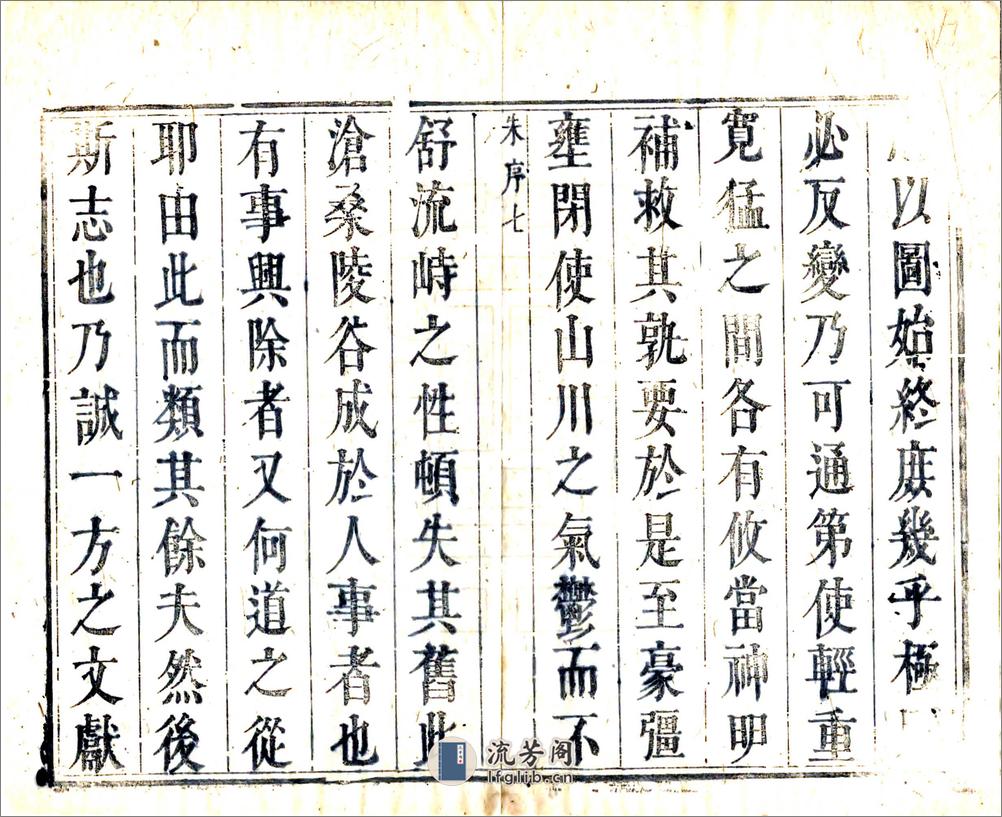 以圖始終庶幾乎極
必反變乃可通第使輕重
寬猛之間各有攸當神明
補救其孰要於是至豪彊
壅閉使山川之氣鬱而不
朱序七
舒流峙之性頓失其舊此
滄桑陵谷成於人事者也
有事興除者又何道之從
耶由此而類其餘夫然後
斯志也乃誠一方之文獻
流芳阁
lfglib.cn